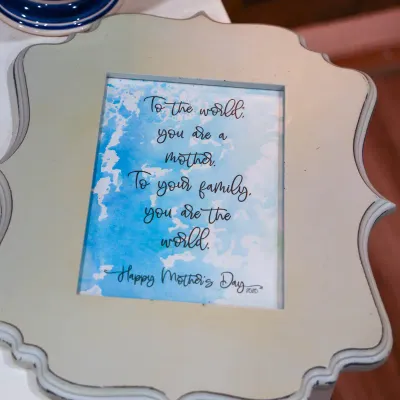 To the world,
you are a
mother.
To your family,
you are the
world.
Happy Mother's Day